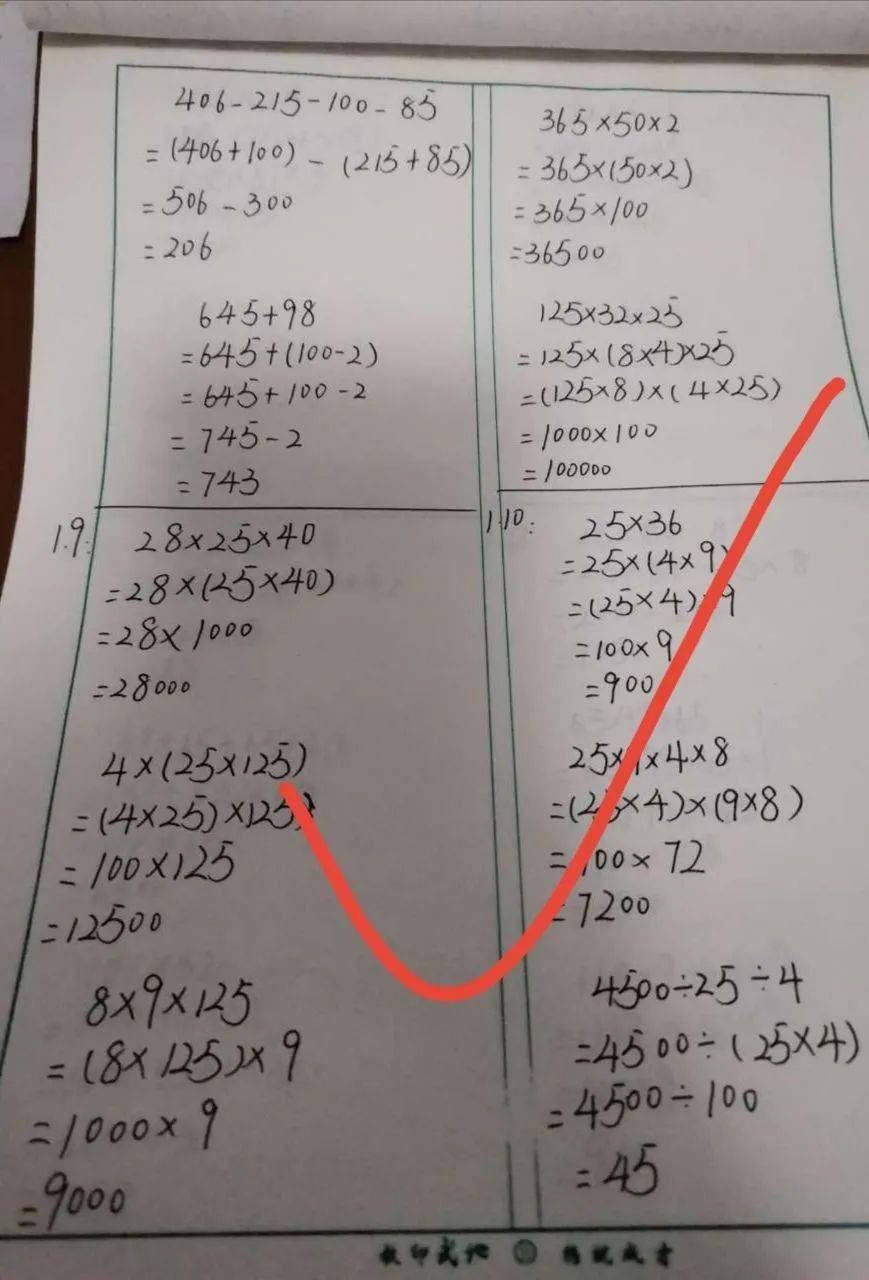 406-215-100-85
=(406+100)-(215+85)
=506-300
=206
645+98
=645+(100-2)
=645+100-2
=745-2
=743
365×50×2
=365×(50×2)
=365×100
=36500
125×32×25
=125×(8×4)×25
=(125×8)×(4×25)
=1000×100
=100000
1.9:
28×25×40
=28×(25×40)
=28×1000
=28000
4×(25×125)
=(4×25)×125)
=100×125
=12500
8×9×125
=(8×125)×9
=1000×9
=9000
1.10:
25×36
=25×(4×9)
=(25×4)×9
=100×9
=900
25×9×4×8
=(25×4)×(9×8)
=100×72
=7200
4500÷25÷4
=4500÷(25×4)
=4500÷100
=45